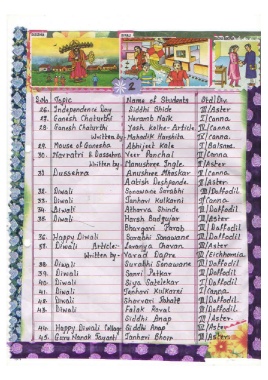 2
S.No Topic Name of Students Std/Div.
26. Independence Day Siddhi Bhide III/Aster
27. Ganesh Chaturthi Heramb Naik I/Canna
28. Ganesh Chaturthi Yash Kolke-Article IV/Canna
Written by- Mahadik Harshita II/Canna
29. Mouse of Ganesha Abhijeet Kale I/Balsam
30. Navratri & Dassehra Veer Panchal I/Canna
Written by- Manushree Ingle. III/Aster
31 Dussehra Anushree Mhaskar I/Canna
Aatish Deshpande. I/Aster
32. Diwali Sonawane Surabhi II/Daffodil
33. Diwali Janhavi Kulkarni I/Canna
34. Diwali Atharva Shinde II/Daffodil
35. Diwali Harsh Badgujar III/Aster
Bhargavi Parab III/Daffodil
36. Happy Diwali Surabhi Sonawane II/Daffodil
37. Diwali Article:- Lavanya Chavan III/Aster
Written by- Varad Dapre
38. Diwali Surabhi Sonawane II/Daffodil
39. Diwali Sanvi Patkar II/Daffodil
40. Diwali Siya Satelekar I/Daffodil
41. Diwali Janhavi Kulkarni I/Canna
42. Diwali Sharvari Sabale II/Daffodil
43. Diwali Falak Raval II/Daffodil
Siddhi Anap III/Aster
44. Happy Diwali Collage Siddhi Anap III/Aster
45. Guru Nanak Jayanti Janhavi Bhoir III/Aster